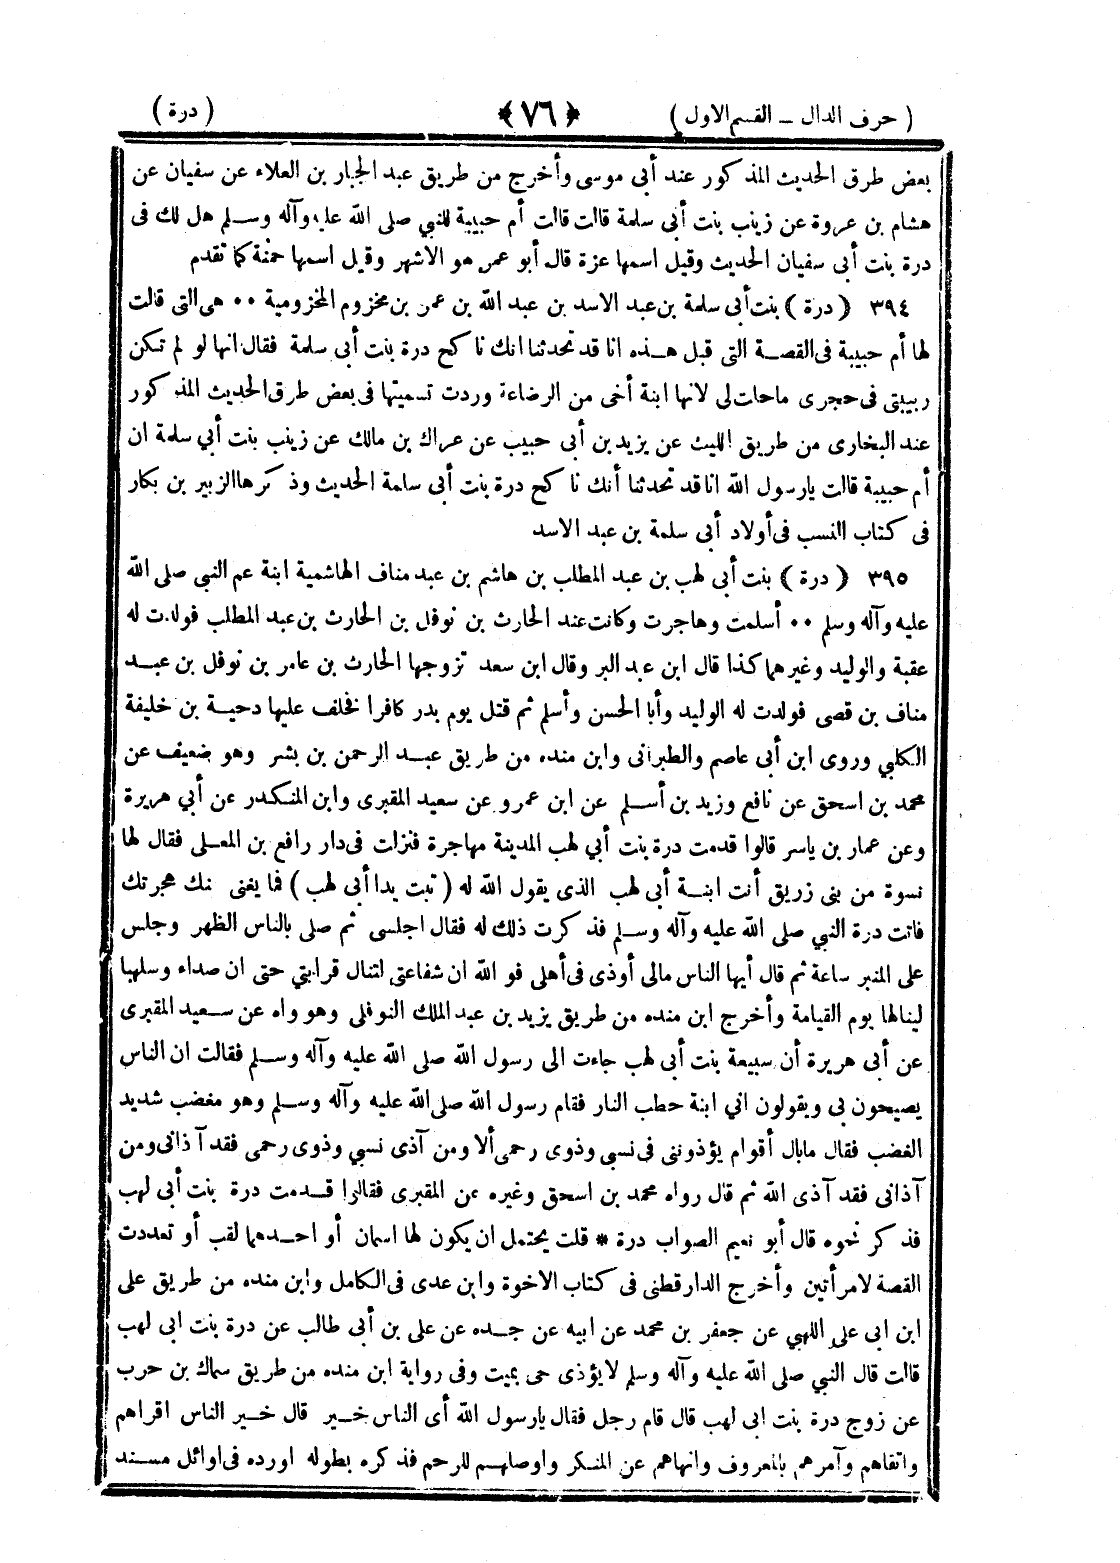 ( حرف الدال ــ القسم الاول ) ﴿٧٦﴾ ( درة )
بعض طرق الحديث المذكور عند أبى موسى وأخرج من طريق عبد الجبار بن العلاء عن سفيان عن
هشام بن عروة عن زينب بنت أبى سلمة قالت قالت أم حبيبة للنبي صلى الله عليه وآله وسلم هل لك فى
درة بنت أبى سفيان الحديث وقيل اسمها عزة قال أبو عمر هو الاشهر وقيل اسمها حمنة كما تقدم
٣٩٤ ( درة ) بنت أبى سلمة بن عبد الاسد بن عبد الله بن عمر بن مخزوم المخزومية ٠٠ هى التى قالت
لها أم حبيبة فى القصة التى قبل هذه انا قد تحدثنا انك ناكح درة بنت أبى سلمة فقال انها لو لم تكن
ربيبتى فى حجرى ماحلت لى لانها ابنة أخى من الرضاعة وردت تسميتها فى بعض طرق الحديث المذكور
عند البخارى من طريق الليث عن يزيد بن أبى حبيب عن عراك بن مالك عن زينب بنت أبي سلمة ان
أم حبيبة قالت يارسول الله انا قد تحدثنا أنك ناكح درة بنت أبى سلمة الحديث وذكرها الزبير بن بكار
فى كتاب النسب فى أولاد أبى سلمة بن عبد الاسد
٣٩٥ ( درة ) بنت أبى لهب بن عبد المطلب بن هاشم بن عبد مناف الهاشمية ابنة عم النبي صلى الله
عليه وآله وسلم ٠٠ أسلمت وهاجرت وكانت عند الحارث بن نوفل بن الحارث بن عبد المطلب فولدت له
عقبة والوليد وغيرهما كذا قال ابن عبد البر وقال ابن سعد تزوجها الحارث بن عامر بن نوفل بن عبد
مناف بن قصى فولدت له الوليد وأبا الحسن وأسلم ثم قتل يوم بدر كافرا فخلف عليها دحية بن خليفة
الكلبي وروى ابن أبى عاصم والطبرانى وابن منده من طريق عبد الرحمن بن بشر وهو ضعيف عن
محمد بن اسحق عن نافع وزيد بن أسلم عن ابن عمرو عن سعيد المقبرى وابن المنكدر عن أبي هريرة
وعن عمار بن ياسر قالوا قدمت درة بنت أبي لهب المدينة مهاجرة فنزلت فى دار رافع بن المعلى فقال لها
نسوة من بنى زريق أنت ابنة أبى لهب الذى يقول الله له ( تبت يدا أبى لهب ) فما يغنى نك هجرتك
فاتت درة النبي صلى الله عليه وآله وسلم فذكرت ذلك له فقال اجلسى ثم صلى بالناس الظهر وجلس
على المنبر ساعة ثم قال أيها الناس مالى أوذى فى أهلى فو الله ان شفاعتى لتنال قرابتي حتى ان صداء وسلهبا
لينالها يوم القيامة وأخرج ابن منده من طريق يزيد بن عبد الملك النوفلى وهو واه عن سعيد المقبرى
عن أبى هريرة أن سبيعة بنت أبى لهب جاءت الى رسول الله صلى الله عليه وآله وسلم فقالت ان الناس
يصيحون بى ويقولون اني ابنة حطب النار فقام رسول الله صلى الله عليه وآله وسلم وهو مغضب شديد
الغضب فقال مابال أقوام يؤذوننى فى نسبى وذوى رحمى ألا ومن آذى نسبي وذوى رحمى فقد آذانى ومن
آذانى فقد آذى الله ثم قال رواه محمد بن اسحق وغيره عن المقبرى فقالوا قدمت درة بنت أبي لهب
فذكر نحوه قال أبو نعيم الصواب درة * قلت يحتمل ان يكون لها اسمان أو احدهما لقب أو تعددت
القصة لامرأتين وأخرج الدارقطنى فى كتاب الاخوة وابن عدى فى الكامل وابن منده من طريق على
ابن ابى على اللهبي عن جعفر بن محمد عن ابيه عن جده عن على بن أبى طالب عن درة بنت ابى لهب
قالت قال النبي صلى الله عليه وآله وسلم لا يؤذى حى بميت وفى رواية ابن منده من طريق سماك بن حرب
عن زوج درة بنت ابى لهب قال قام رجل فقال يارسول الله أى الناس خير قال خير الناس اقراهم
واتقاهم وآمرهم بالمعروف وانهاهم عن المنكر واوصلهم للرحم فذكره بطوله اورده فى اوائل مسند